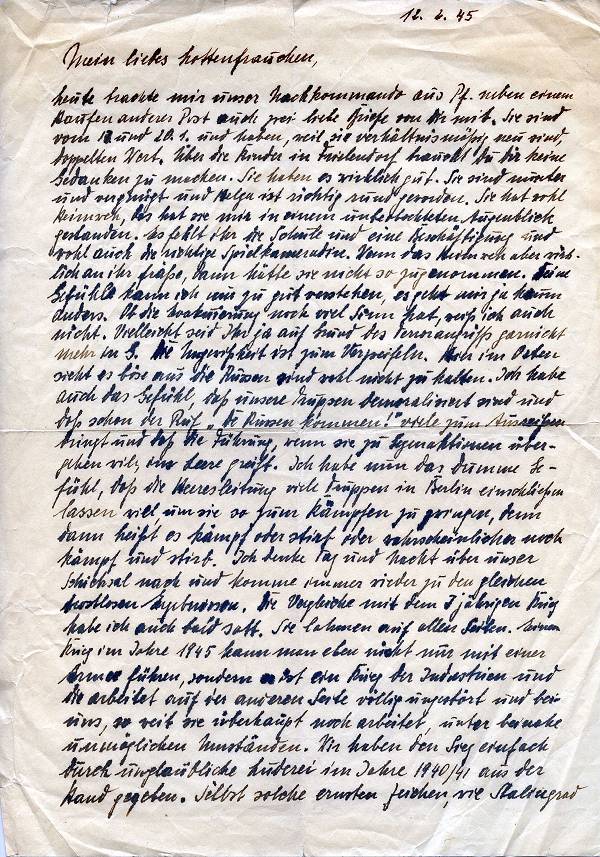 12. 2. 45
Mein liebes Lottenfrauchen,
heute brachte mir unser Nachkommando aus Pf. neben einem
Haufen anderer Post auch zwei liebe Briefe von Dir mit. Sie sind
vom und 20.1. und haben, weil sie verhältnismäßig neu sind,
doppelten Wert. Über die Kinder in Friedendorf brauchst Du Dir keine
Gedanken zu machen. Sie haben es wirklich gut. Sie sind munter
und vergnügt und Helga ist richtig rund geworden. Sie hat wohl
Heimweh, das hat sie mir in einem unbeobachteten Augenblick
gestanden. Es fehlt ihr die Schule und eine Beschäftigung und
wohl auch die richtige Spielkameradin. Wenn das Heimweh aber wirk-
lich an ihr fräße, dann hätte sie nicht so zugenommen. Deine
Gefühle kann ich nur zu gut verstehen, es geht mir ja kaum
anders. Ob die Evakuierung noch viel Sinn hat, weiß ich auch
nicht. Vielleicht seid Ihr ja auf Grund des Terrorangriffs garnicht
mehr in S. Die Ungewißheit ist zum Verzweifeln. Hier im Osten
sieht es böse aus die Russen sind wohl nicht zu halten. Ich habe
auch das Gefühl, daß unsere Truppen demoralisiert sind und
daß schon der Ruf „Die Russen kommen!" viele zum Ausreißen
bringt und daß die Führung, wenn sie zu Gegenaktionen über-
gehen will, ins Leere greift. Ich habe nun das dumme Ge-
fühl, daß die Heeresleitung viele Truppen in Berlin einschließen
lassen will, um sie so zum Kämpfen zu zwingen, denn
dann heißt es kämpf oder stirb oder wahrscheinlicher noch
kämpf und stirb. Ich denke Tag und Nacht über unser
Schicksal nach und komme immer wieder zu den gleichen
trostlosen Ergebnissen. Die Vergleiche mit dem 7 jährigen Krieg
habe ich auch bald satt. Sie lahmen auf allen Seiten. Einen
Krieg im Jahre 1945 kann man eben nicht nur mit einer
Armee führen, sondern es ist ein Krieg der Industrien und
die arbeitet auf der anderen Seite völlig ungestört und bei
uns, so weit sie überhaupt noch arbeitet, unter beinahe
unmöglichen Umständen. Wir haben den Sieg einfach
durch unglaubliche Luderei im Jahre 1940/41 aus der
Hand gegeben. Selbst solche ernsten Zeichen, wie Stalingrad